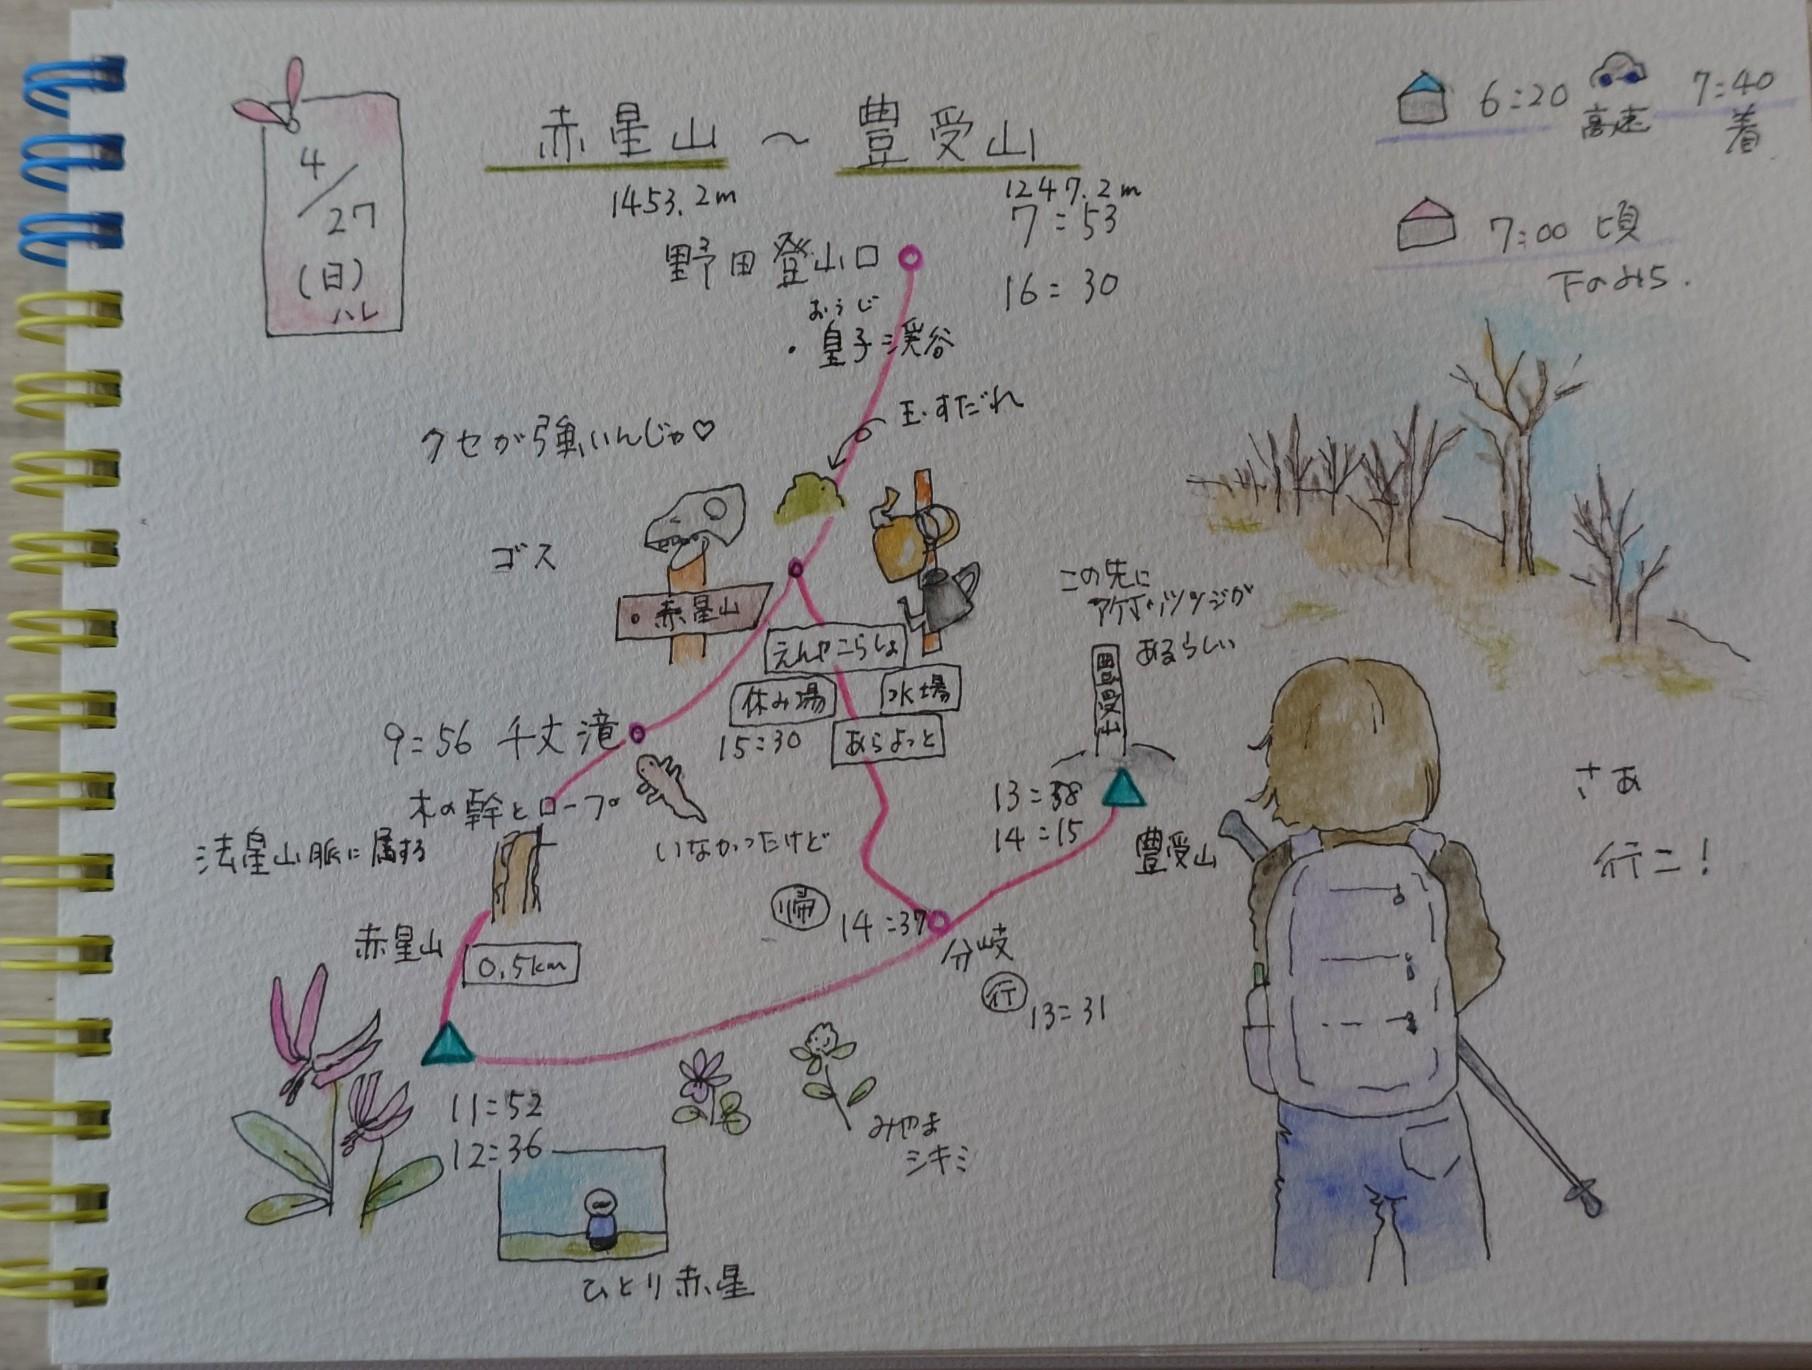 4/27
(日)
ハレ
赤星山 ～ 豊受山
1453.2m
1247.2m
6:20 高速 7:40
着
7:00 頃
下のみち.
野田登山口
7:53
16:30
おうじ
・皇子渓谷
玉すだれ
クセが強いんじゃ♡
ゴス
・赤星山
えんやこらしょ
休み場
水場
15:30
あらよっと
この先に
アケボノツツジが
あるらしい
豊受山
9:56 千丈滝
木の幹とロープ
いなかったけど
法星山脈に属する
13:38
14:15
豊受山
さあ
行こ!
帰 14:37
分岐
行 13:31
赤星山
0.5km
11:52
12:36
みやま
シキミ
ひとり赤星